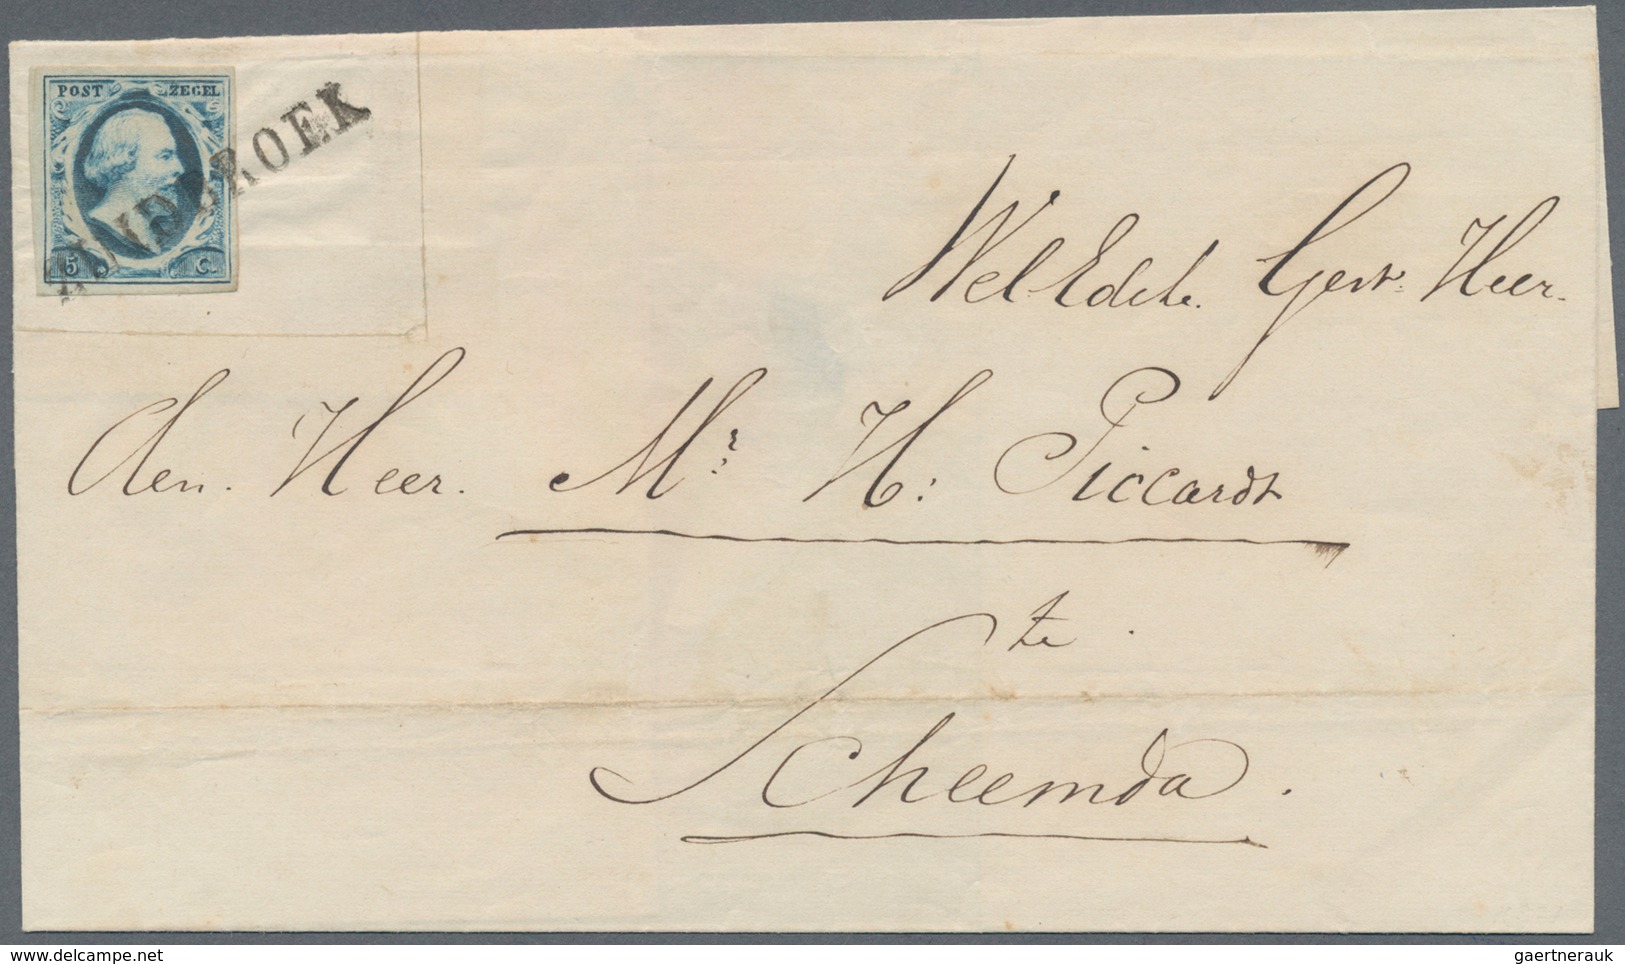 POST ZEGEL
5 C.
ZUIDBROEK
Wel Edele. Gestr. Heer.
Aen. Heer. Mr. H: Piccardt
te
Scheemda.
www.delcampe.net
gaertnerauk